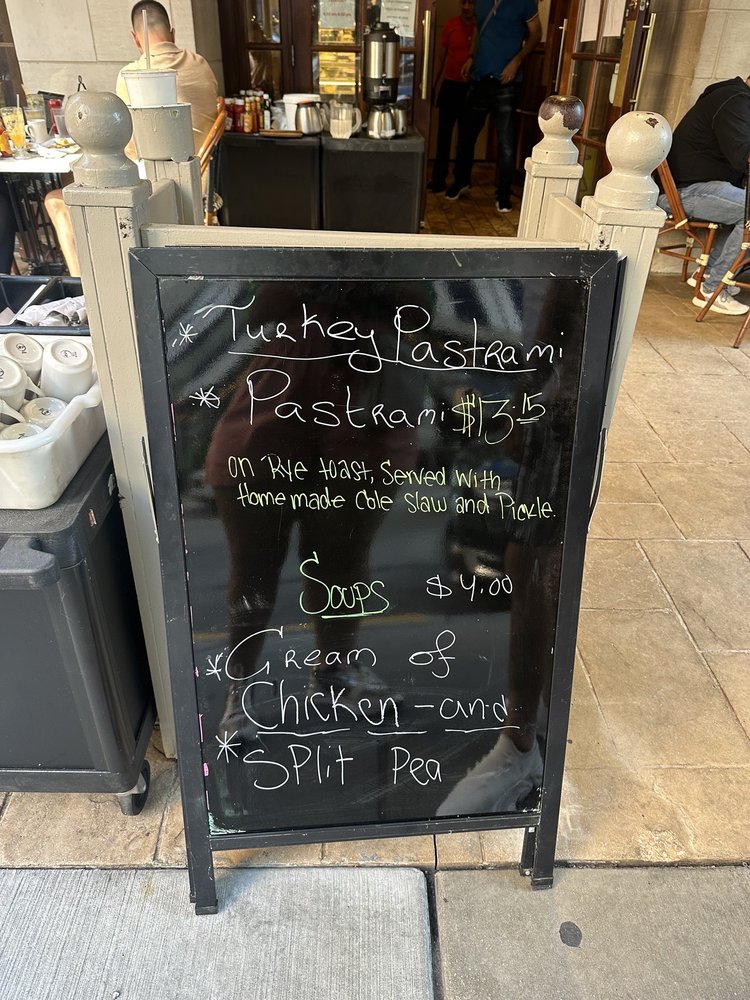 * Turkey Pastrami
* Pastrami $13.15
on Rye toast, Served with
Homemade Cole Slaw and Pickle.
Soups $4.00
* Cream of
Chicken - and
* Split Pea